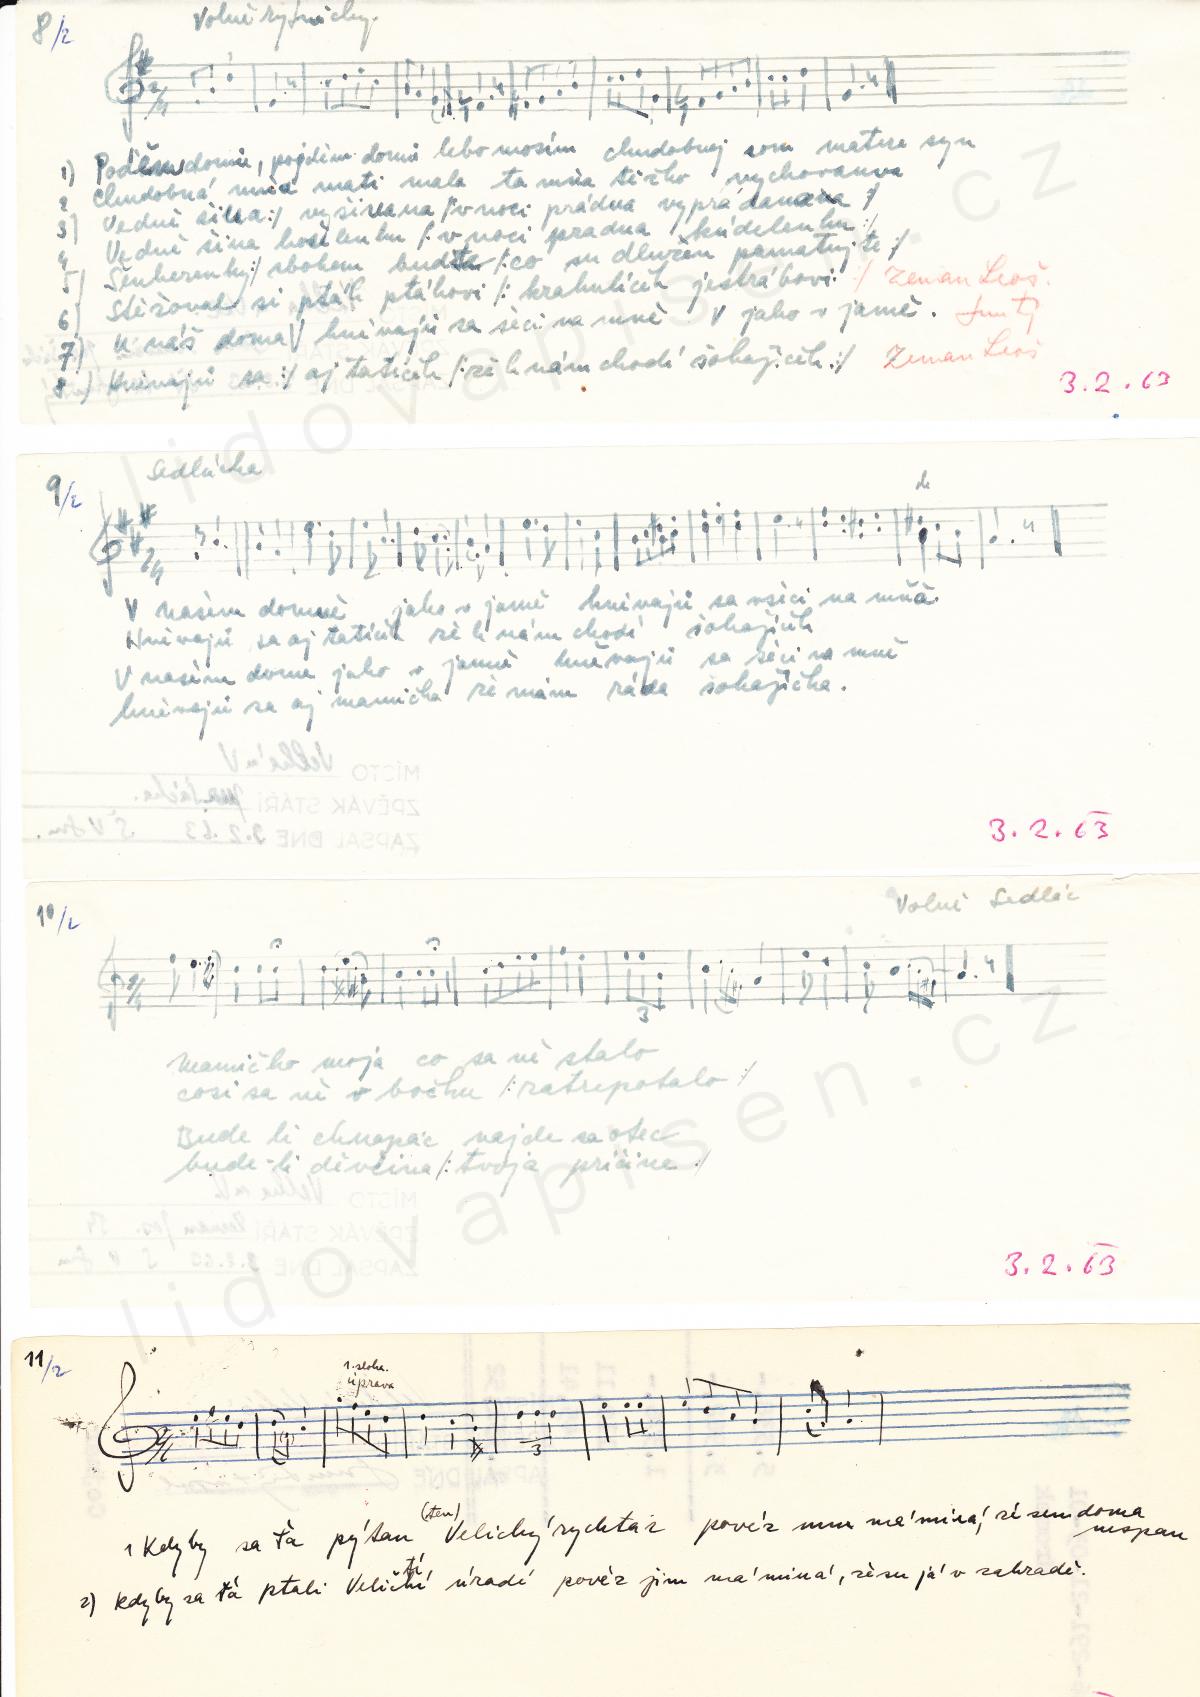 8/2
Volně rytmicky.
2/4
1) Poděmdomů, pojděm domů lebo mosím chudobnej som matere syn
2 Chudobná mňa mati mala ta mňa těžko vychovanva
3) Vedně šiua:/ vyšivana /:v noci prádua vyprádanana:/
4 Vedně šina košelenku /:v noci pradua kúdelenku:/
5) Šenkerenky:/ sbohem buďte /:co su dlužen pamatujte:/
6) Stěžoval si pták ptákovi /: krahulíček jestrábovi :/ Zeman Leoš.
7) U náš doma V hněvajú sa šeci na mně V jako v jamě.
8) Hněvajú sa:/ aj tatíček /:že k nám chodí šohajíček:/ Zeman Leoš
3.2.63
9/2
Sedlácka
2/4
V našém domně jako v jamě hněvajú sa všeci na mňa.
Hněvajú sa aj tatíček že k nám chodí šohajíček
V našém domě jako v jamně hněvajú sa šeci na mně
hněvajú sa aj mamička že mám ráda šohajíčka.
MÍSTO Velká n V
ZPĚVÁK STÁŘÍ
ZAPSAL DNE 3.2.63
3.2.63
10/2
Volně Sedlác
2/4
3
Mamičko moja co sa ně stalo
cosi sa ně v bočku /:zatrepotalo:/
Bude li chuapác najde sa otec
bude-li děvčina /:tvoja pričina:/
MÍSTO Velká n V.
ZPĚVÁK STÁŘÍ Zeman Jos.
ZAPSAL DNE 3.2.63
3.2.63
11/2
1. sloka.
úprava
2/4
3
(ten)
1 Kdyby sa ťa pýtau Velický rychtár pověz mu má miuá, že sem doma
nespau
tí
2) Kdyby sa ťá ptali Veličkí úradí pověz jim má miuá, že su já v zahradě.
lidovapisen.cz
lidovapisen.cz